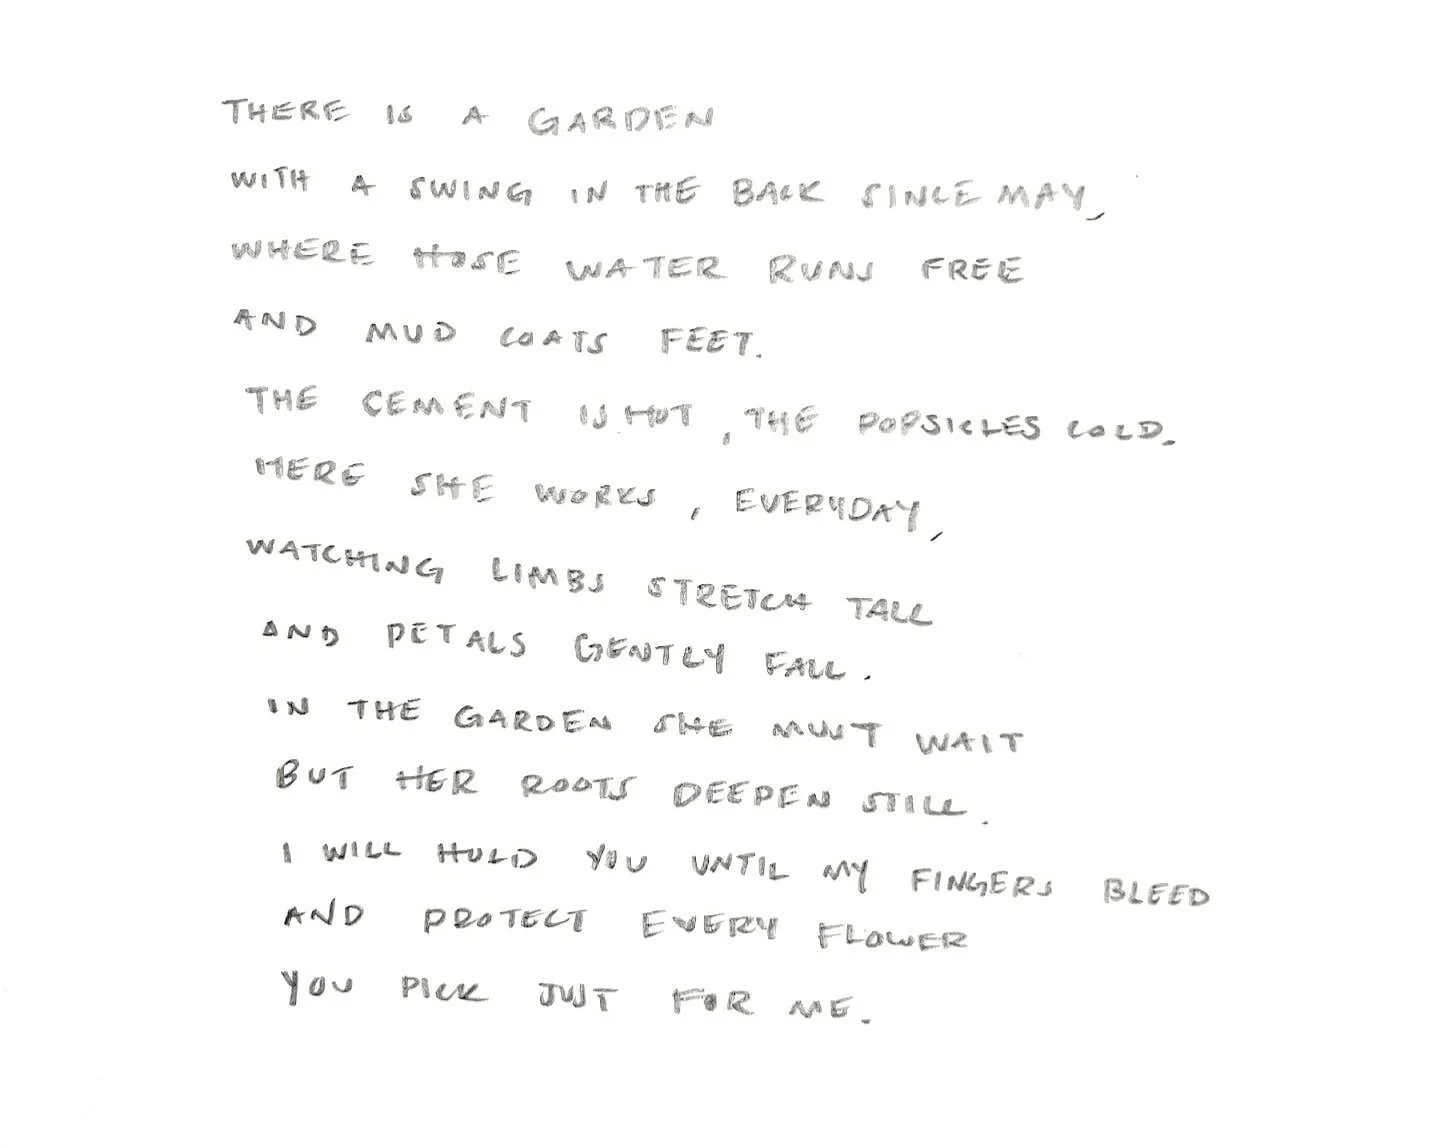 THERE IS A GARDEN
WITH A SWING IN THE BACK SINCE MAY,
WHERE HOSE WATER RUNS FREE
AND MUD COATS FEET.
THE CEMENT IS HOT, THE POPSICLES COLD.
HERE SHE WORKS, EVERYDAY,
WATCHING LIMBS STRETCH TALL
AND PETALS GENTLY FALL.
IN THE GARDEN SHE MUST WAIT
BUT HER ROOTS DEEPEN STILL.
I WILL HOLD YOU UNTIL MY FINGERS BLEED
AND PROTECT EVERY FLOWER
YOU PICK JUST FOR ME.